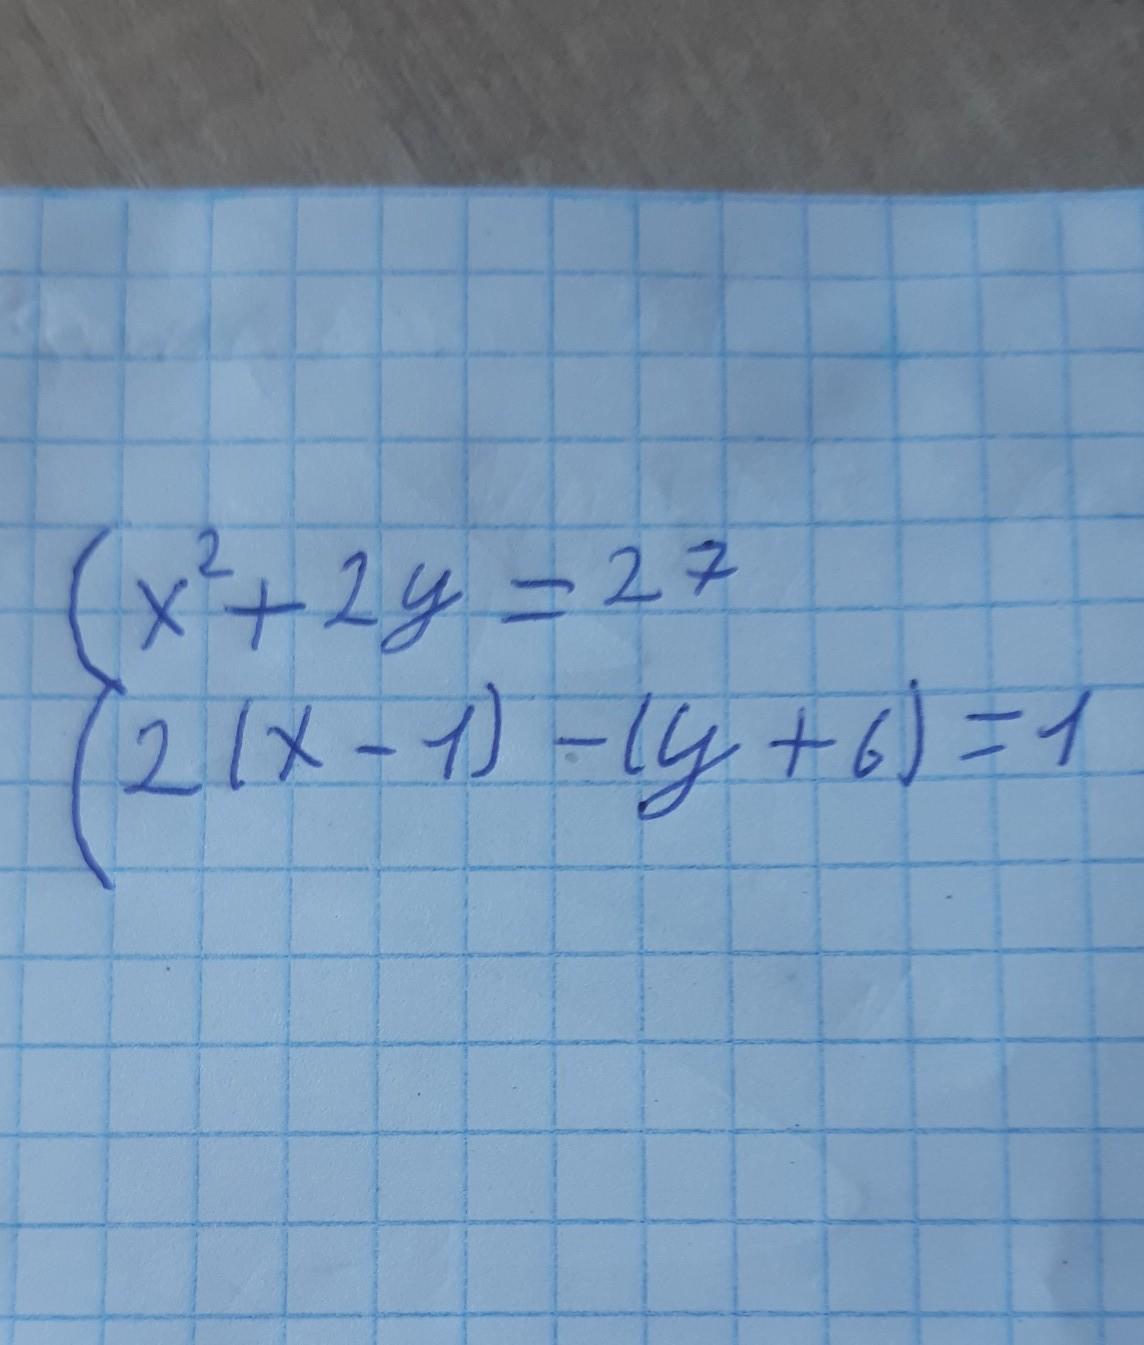 x² + 2y = 27
2(x - 1) - (y + 6) = 1